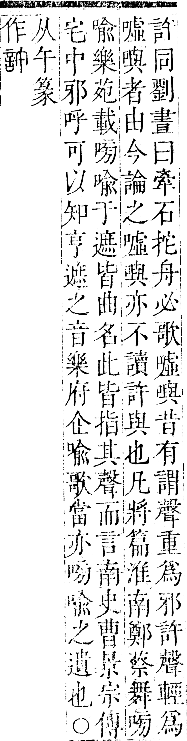 許同劉晝曰牽石拕舟必歌噓㗵昔有謂聲重爲邪許聲輕爲
噓㗵者由今論之噓㗵亦不讀許與也凡將篇淮南鄭蔡舞㗅
喩樂苑載㗅喩于遮皆曲名此皆指其聲而言南史曹景宗傳
宅中邪呼可以知亨遮之音樂府企喩歌當亦㗅喩之遺也○
从午篆
作